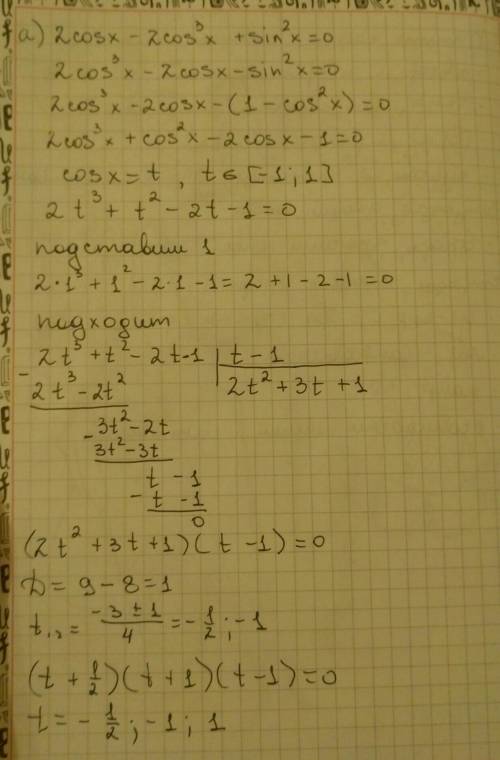 а) 2cosx - 2cos³x + sin²x = 0
2cos³x - 2cosx - sin²x = 0
2cos³x - 2cosx - (1 - cos²x) = 0
2cos³x + cos²x - 2cosx - 1 = 0
cosx = t , t ∈ [-1; 1]
2t³ + t² - 2t - 1 = 0
подставим 1
2·1³ + 1² - 2·1 - 1 = 2 + 1 - 2 - 1 = 0
подходит
2t³ + t² - 2t - 1 | t - 1
- 2t³ - 2t² | 2t² + 3t + 1
3t² - 2t
- 3t² - 3t
t - 1
- t - 1
0
(2t² + 3t + 1)(t - 1) = 0
D = 9 - 8 = 1
t₁,₂ = (-3 ± 1)/4 = -1/2 ; -1
(t + 1/2)(t + 1)(t - 1) = 0
t = -1/2 ; -1 ; 1